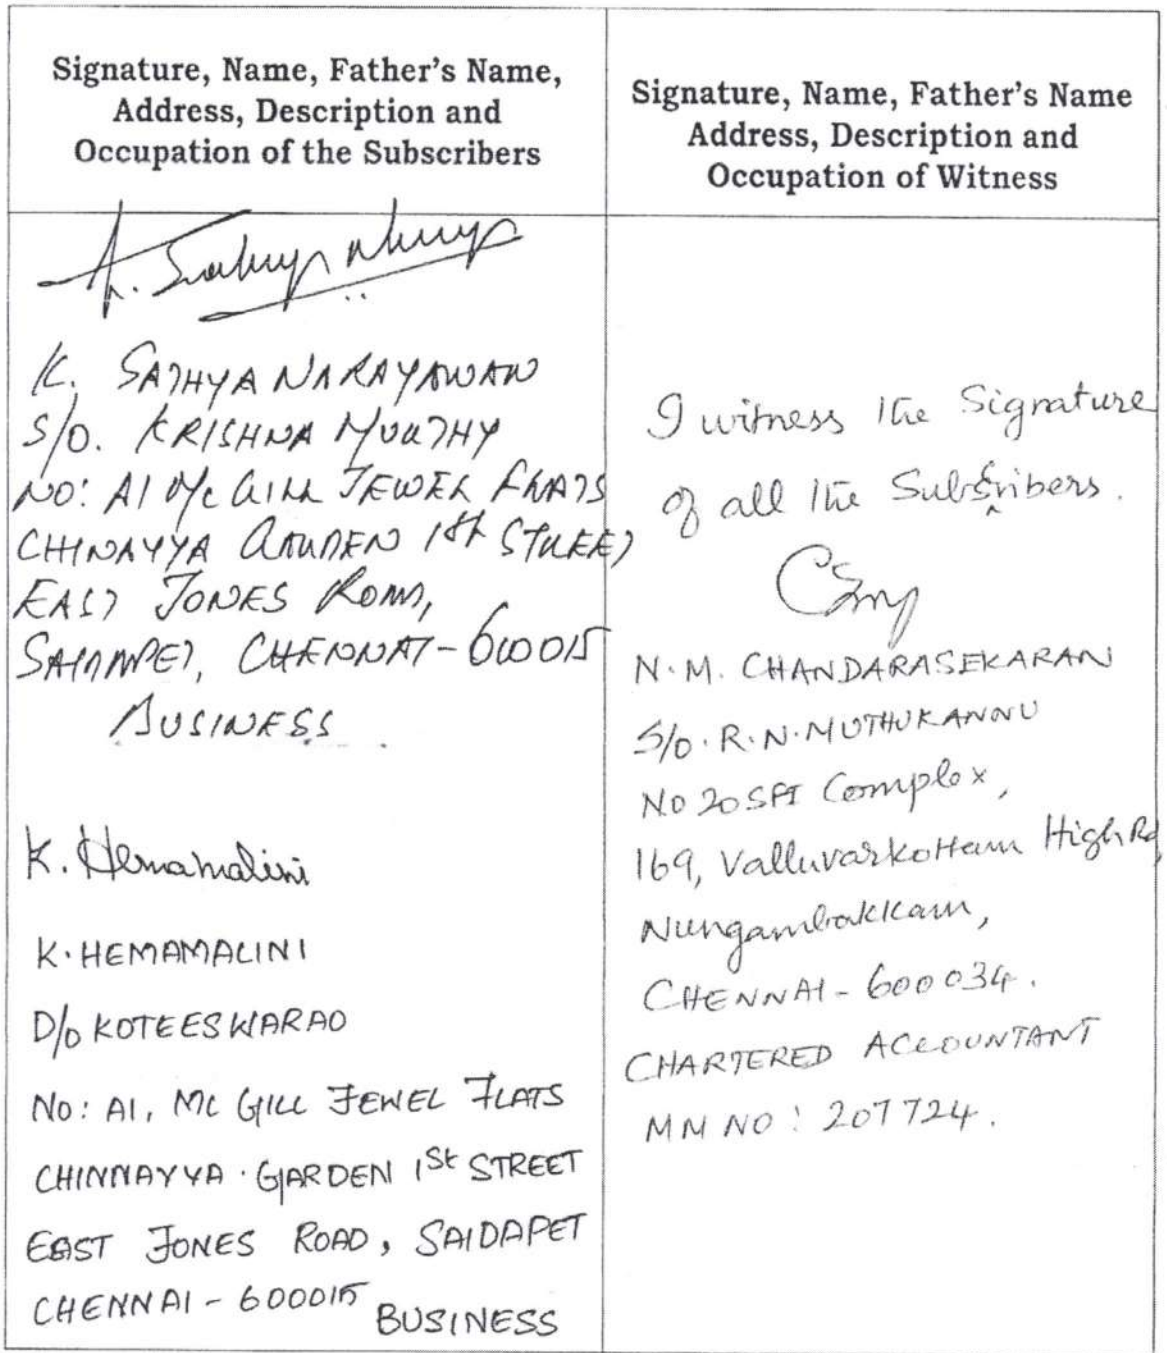 Signature, Name, Father's Name,
Address, Description and
Occupation of the Subscribers
K. SATHYA NARAYANAN
S/O. KRISHNA MURTHY
NO: A1 Mc GILL JEWEL FLATS
CHINAYYA GARDEN 1st STREET
EAST JONES ROAD,
SAIDAPET, CHENNAI - 600015
BUSINESS
K. Hemamalini
K. HEMAMALINI
D/o KOTEESWARAO
No: A1, Mc GILL JEWEL FLATS
CHINNAYYA GARDEN 1st STREET
EAST JONES ROAD, SAIDAPET
CHENNAI - 600015
BUSINESS
Signature, Name, Father's Name
Address, Description and
Occupation of Witness
I witness the Signature
of all the Subscribers.
N. M. CHANDARASEKARAN
S/o. R. N. MUTHUKANNU
No 20 Complex,
169, Valluvarkottam High Rd,
Nungambakkam,
CHENNAI - 600034.
CHARTERED ACCOUNTANT
M M NO: 207724.